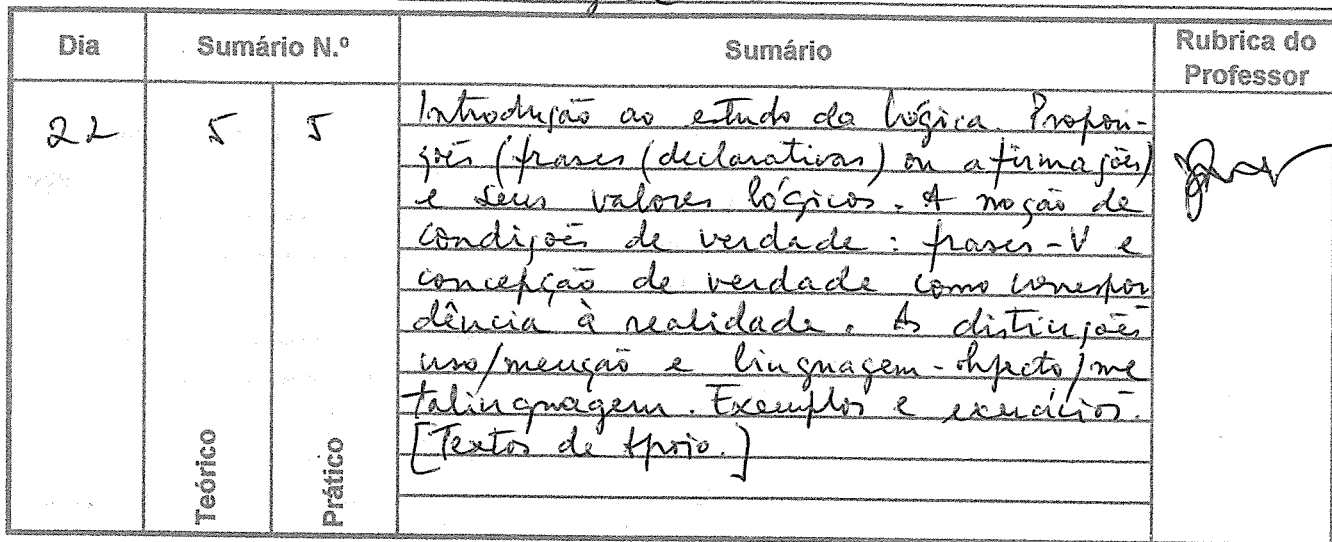 Dia Sumário N.º Sumário Rubrica do Professor
22 5 5
Introdução ao estudo da lógica. Proposi-
ções (frases (declarativas) ou afirmações)
e seus valores lógicos. A noção de
condições de verdade: frases-V e
concepção de verdade como correspon
dência à realidade. As distinções
uso/menção e linguagem-objecto/me
talinguagem. Exemplos e exercícios.
[Textos de Apoio.]
Teórico Prático